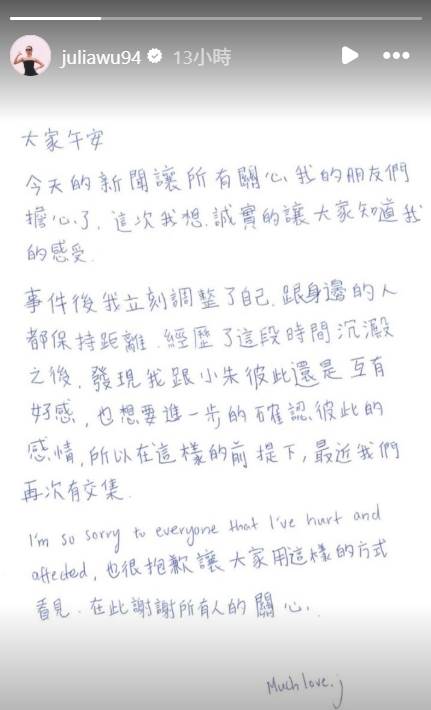 juliawu94 13小時
大家午安
今天的新聞讓所有關心我的朋友們
擔心了, 這次我想誠實的讓大家知道我
的感受.
事件後我立刻調整了自己, 跟身邊的人
都保持距離. 經歷了這段時間沉澱
之後, 發現我跟小朱彼此還是互有
好感, 也想要進一步的確認彼此的
感情, 所以在這樣的前提下, 最近我們
再次有交集.
I'm so sorry to everyone that I've hurt and
affected, 也很抱歉讓大家用這樣的方式
看見. 在此謝謝所有人的關心.
Much love. j